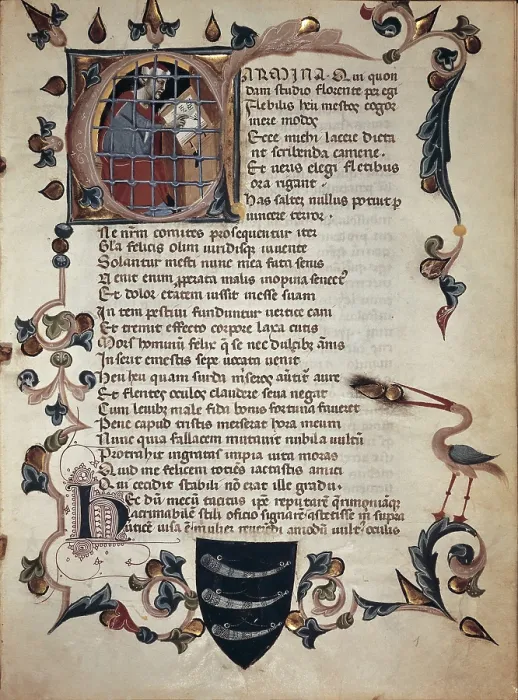 CARMINA. Qui quon
dam studio florente peregi
Flebilis heu mestos cogor
inire modos
Ecce michi lacere dicta
nt scribenda camene.
Et veris elegi fletibus
ora rigant.
Has saltem nullus potuit p
vincere terror.
Ne nr̃m comites prosequerentur iter
Gl̃a felicis olim viridisq̃ iuvente
Solantur mesti nunc mea fata senis
Uenit enim ꝓperata malis inopina senect9
Et dolor etatem iussit inesse suam
Intempestivi funduntur vertice cani
Et tremit effecto corpore laxa cutis
Mors hominũ felix q̃ se nec dulcibꝫ ãnis
Inserit et mestis sepe vocata venit
Heu heu quam surda mĩseros avertit aure
Et flentes oculos claudere seva negat
Cum levibꝫ male fida bonis fortuna faveret
Pene caput tristis merserat hora meum
Nunc quia fallacem mutavit nubila vultũ
Protrahit ingratas impia vita moras
Quid me felicem totiẽs iactastis amici
Qui cecidit stabili nõ erat ille gradu.
Hec dũ mecũ tacitus ip̃e reputarẽ q̃rimoniãqꝫ
lacrimabilẽ stili officio signarẽ astetisse m̃ supra